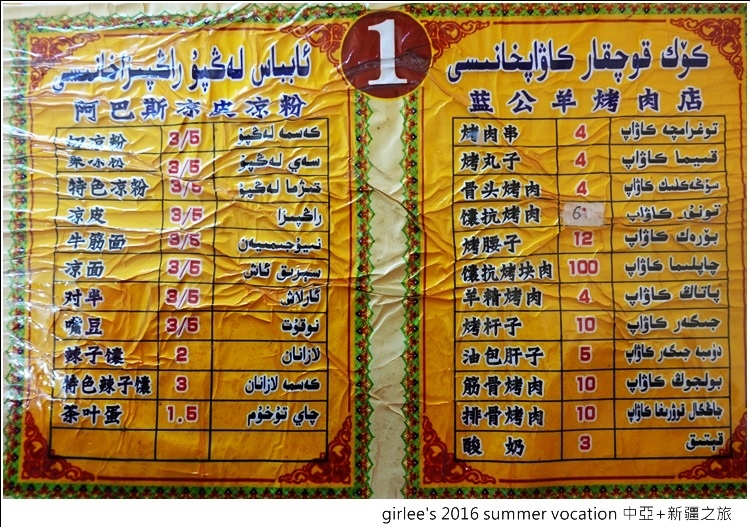 1
ئابباس لەڭپۇڭ راڭپىزاخانىسى
阿巴斯凉皮凉粉
切凉粉 3/5 كەسمە لەڭپۇڭ
3/5 سەي لەڭپۇڭ
特色凉粉 3/5 لەڭپۇڭ
凉皮 3/5 راڭپىزا
牛筋面 3/5 نىيۇجىمىيەن
凉面 3/5 سېرىق ئاش
对半 3/5 ئارلاش
嘴豆 3/5 نوقۇت
辣子馕 2 لازانان
特色辣子馕 3 كەسمە لازانان
茶叶蛋 1.5 چاي تۇخۇم
كۆك قوچقار كاۋاپخانىسى
蓝公羊烤肉店
烤肉串 4 توغراچە كاۋاپ
烤丸子 4 قىيما كاۋاپ
骨头烤肉 4 سۆڭەكلىك كاۋاپ
馕抗烤肉 6 تونۇر كاۋاپ
烤腰子 12 بۆرەك كاۋاپ
馕抗烤块肉 100 چاپلىما كاۋاپ
羊精烤肉 4 پاتاڭ كاۋاپ
烤杆子 10 جىگەر كاۋاپ
油包肝子 5 دۈمبە جىگەر كاۋاپ
筋骨烤肉 10 بولجوڭ كاۋاپ
排骨烤肉 10 جاڭگال قوۋرىغا كاۋاپ
酸奶 3 قېتىق
girlee's 2016 summer vocation 中亞+新疆之旅